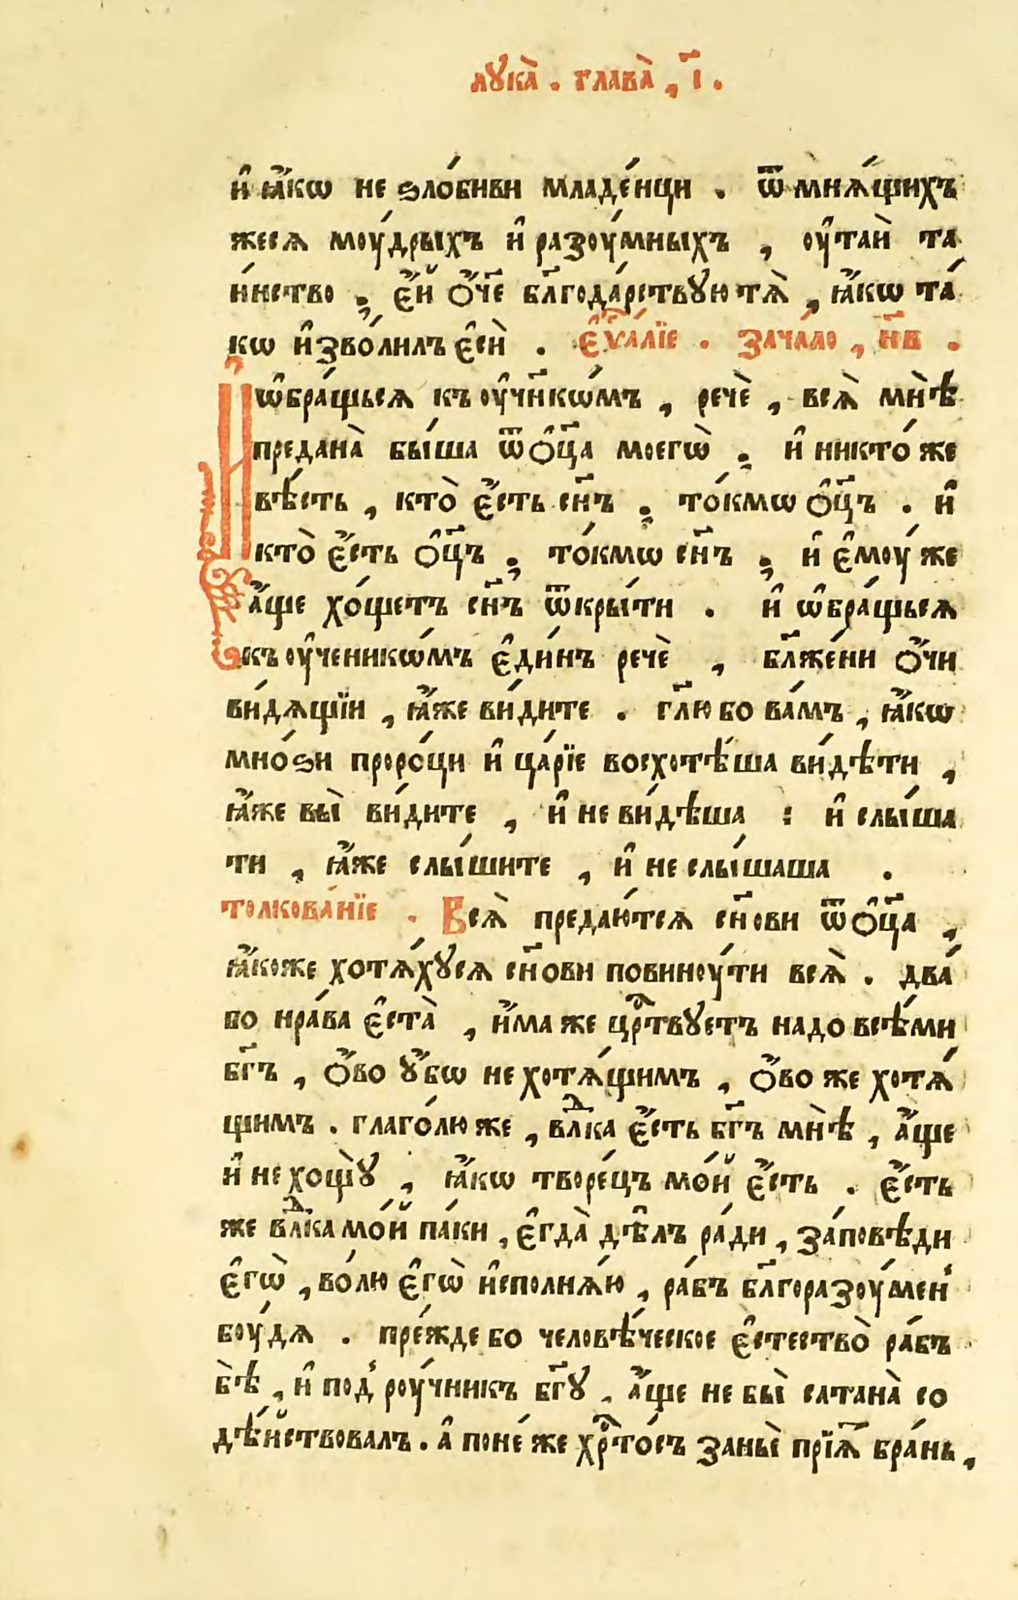 лꙋка̀ . глава̀ , і҃ .
и҆ ꙗ҆́кѡ не ѕло́биви младе́нци . ѿ мнѧ́щихъ
жесѧ моу́дрыхъ и҆ разоу́мныхъ , оу҆таѝ та
и́нство , є҆́й ѻ҆́ч҃е бл҃года́рствꙋютѧ̀ , ꙗ҆́кѡ та́
кѡ и҆зво́лилъ є҆сѝ . є҆ѵⷢ҇а́лїе . зача́ло , н҃в .
И҆ ѡ҆бра́щьсѧ къ оу҆чн҃кѡ́мъ , речѐ , всѧ̀ мнѣ̀
предана̀ бы́ша ѿ ѻ҆ц҃а̀ моегѡ̀ , и҆ никто́ же
вѣ́сть , кто̀ є҆́сть сн҃ъ , то́кмѡ ѻ҆ц҃ъ . и҆
кто̀ є҆́сть ѻ҆ц҃ъ , то́кмѡ сн҃ъ , и҆ є҆моу́ же
а҆́ще хо́щетъ сн҃ъ ѿкры́ти . и҆ ѡ҆бра́щьсѧ
къ оу҆ченикѡ́мъ є҆ди́нъ речѐ , бл҃же́ни ѻ҆́чи
ви́дѧщїи , ꙗ҆́же ви́дите . гл҃ю бо ва́мъ , ꙗ҆́кѡ
мно́ѕи проро́ци и҆ ца́рїе восхотѣ́ша ви́дѣти ,
ꙗ҆́же вы̀ ви́дите , и҆ не ви́дѣша : и҆ слы́ша
ти , ꙗ҆́же слы́шите , и҆ не слы́шаша .
толкова́нїе . Всѧ̀ предаю́тсѧ сн҃ови ѿ ѻ҆ц҃а̀ ,
ꙗ҆́коже хотѧ́хꙋсѧ сн҃ови повиноу́ти всѧ̀ . два́
бо нра́ва є҆ста̀ , и҆́ма же црⷭ҇твꙋетъ надо всѣ́ми
бг҃ъ , ѻ҆́во ᲂу҆́бѡ не хотѧ́щимъ , ѻ҆́во же хотѧ́
щимъ . глаго́лю же , влⷣка є҆́сть бг҃ъ мнѣ̀ , а҆́ще
и҆ не хощꙋ̀ , ꙗ҆́кѡ творе́цъ мо́й є҆́сть . є҆́сть
же влⷣка мо́й па́ки , є҆гда̀ дѣ́лъ ра́ди , за́повѣди
є҆гѡ̀ , во́лю є҆гѡ̀ и҆сполнѧ́ю , ра́бъ бл҃горазоу́мен
боу́дѧ . пре́жде бо человѣ́ческое є҆стество̀ ра́бъ
бѣ̀ , и҆ под роу́чникъ бг҃ꙋ , а҆́ще не бы̀ сатана̀ со
дѣ́йствовалъ . а҆ поне́ же хрⷭ҇то́съ за ны̀ прїѧ́т бра́нь ,